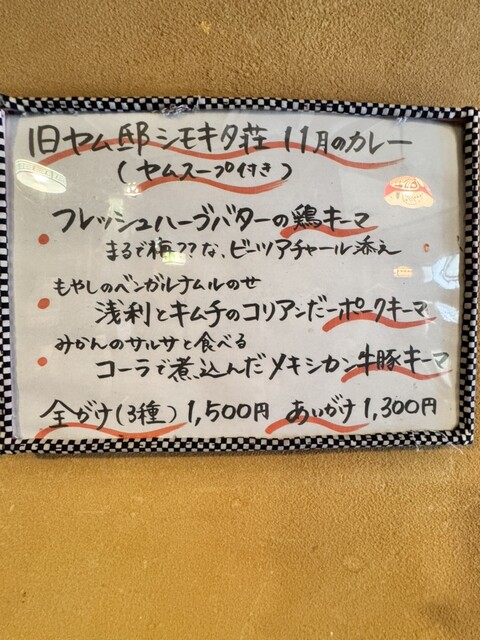 旧ヤム邸シモキタ荘 11月のカレー
(ヤムスープ付き)
フレッシュハーブバターの鶏キーマ
まるで梅??な、ビーツアチャール添え
もやしのベンガルナムルのせ
浅利とキムチのコリアンだーポークキーマ
みかんのサルサと食べる
コーラで煮込んだメキシカン牛豚キーマ
全がけ(3種) 1,500円 あいがけ 1,300円